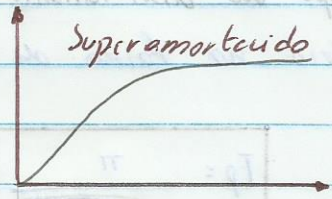 Superamortecido
Tp = π